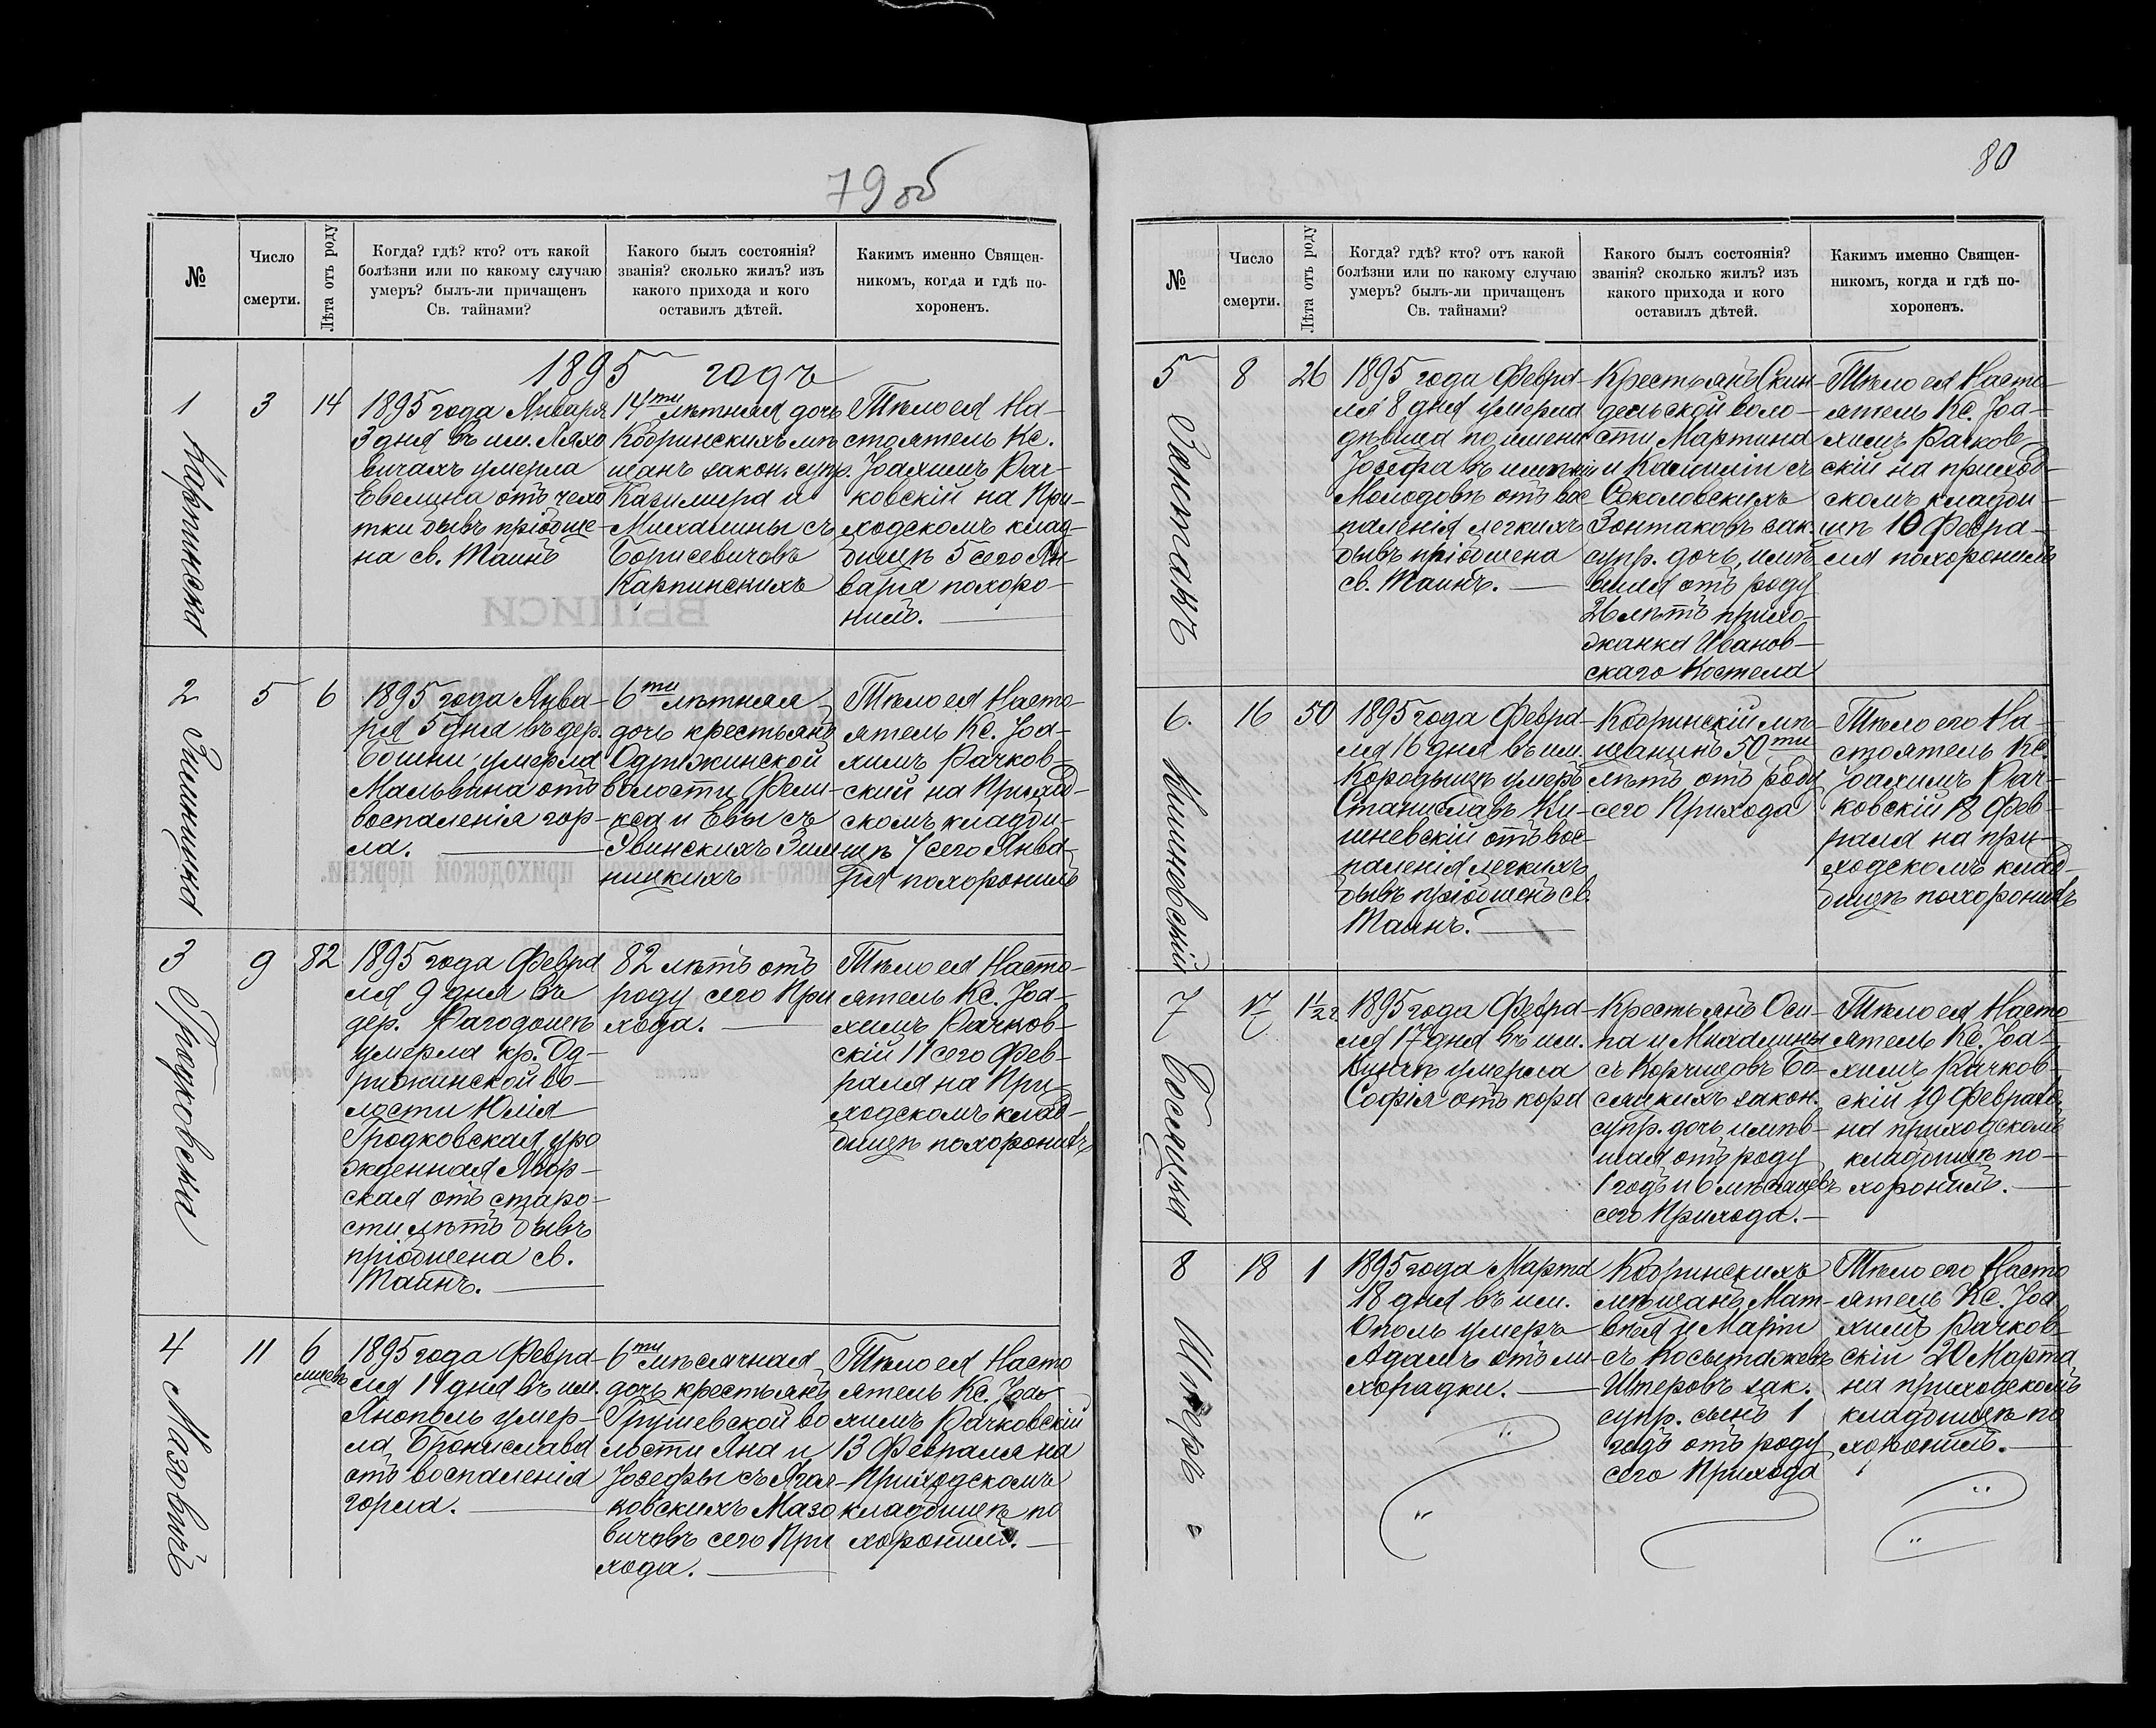 79 об
№
Число
смерти.
Лѣта отъ роду
Когда? гдѣ? кто? отъ какой
болѣзни или по какому случаю
умеръ? былъ-ли причащенъ
Св. тайнами?
Какого былъ состоянія?
званія? сколько жилъ? изъ
какого прихода и кого
оставилъ дѣтей.
Какимъ именно Священ-
никомъ, когда и гдѣ по-
хороненъ.
1895 годъ
1
Карпинская
3
14
1895 года Января
3 дня въ им. Ляхо
вичахъ умерла
Евелина отъ чехо
тки бывъ пріобще-
на св. Таинъ
14ти лѣтняя дочь
Кобринскихъ мѣ
щанъ закон. супр.
Казимира и
Михалины съ
Борисевичовъ
Карпинскихъ
Тѣло ея На-
стоятель Кс.
Іоахимъ Рач-
ковскій на При-
ходскомъ клад-
бищѣ 5 сего Ян-
варя похоро-
нилъ.
2
Зимницкая
5
6
1895 года Янва-
ря 5 дня въ дер.
умерла
Мальвина отъ
воспаленія гор-
ла.
6ти лѣтняя
дочь крестьянъ
Одрижинской
волости Фели-
кса и Евы съ
Явинскихъ Зим
ницкихъ
Тѣло ея Насто-
ятель Кс. Іоа-
химъ Рачков-
ский на Приход-
скомъ кладби-
щѣ 7 сего Янва-
ря похоронилъ
3
Гродковская
9
82
1895 года Февра
ля 9 дня въ
дер. Рагодощѣ
умерла кр. Од-
рижинской во-
лости Юлія
Гродковская уро
жденная Явор-
ская отъ старо-
сти лѣтъ бывъ
пріобщена св.
Таинъ.
82 лѣтъ отъ
роду сего При
хода.
Тѣло ея Насто-
ятель Кс. Іоа-
химъ Рачков-
скій 11 сего Фев-
раля на При-
ходскомъ клад-
бищѣ похоронилъ
4
Мазовичъ
11
6
мцевъ
1895 года Февра-
ля 11 дня въ им.
Янополь умер-
ла Бронислава
отъ воспаленія
горла.
6ти мѣсячная
дочь крестьянъ
Грушевской во
лости Яна и
Іозефы съ
ковскихъ Мазо
вичовъ сего При
хода.
Тѣло ея Насто
ятель Кс. Іоа-
химъ Рачковскій
13 Февраля на
Приходскомъ
кладбищѣ по
хоронилъ.
80
№
Число
смерти.
Лѣта отъ роду
Когда? гдѣ? кто? отъ какой
болѣзни или по какому случаю
умеръ? былъ-ли причащенъ
Св. тайнами?
Какого былъ состоянія?
званія? сколько жилъ? изъ
какого прихода и кого
оставилъ дѣтей.
Какимъ именно Священ-
никомъ, когда и гдѣ по-
хороненъ.
5
Зонтакъ
8
26
1895 года Февра-
ля 8 дня умерла
дѣвица по имени
Іозефа въ имѣніи
Молодовѣ отъ вос
паленія легкихъ
бывъ пріобщена
св. Таинъ.
Крестьянъ Скин
дельской воло-
сти Мартина
и Камиліи съ
Соколовскихъ
Зонтаковъ зак.
супр. дочь, имѣв
шая отъ роду
26 лѣтъ прихо-
жанка Иванов-
скаго Костела
Тѣло ея Насто
ятель Кс. Іоа-
химъ Рачков-
скій на приход-
скомъ кладби-
щѣ 10 Февра-
ля похоронилъ
6.
Кишневскій
16
50
1895 года Февра-
ля 16 дня въ им.
умеръ
Станиславъ Ки-
шневскій отъ вос
паленія легкихъ
бывъ пріобщенъ св.
Таинъ.
Кобринскій мѣ-
щанинъ 50ти
лѣтъ отъ роду
сего Прихода
Тѣло его На-
стоятель Кс.
Іоахимъ Рач-
ковскій 18 Фев-
раля на при-
ходскомъ клад-
бищѣ похоронилъ
7
Босяцкая
17
1 1/2 г
1895 года Февра-
ля 17 дня въ им.
умерла
Софія отъ кори
Крестьянъ Оси-
па и Михалины
съ Корчицовъ Бо-
сяцкихъ закон.
супр. дочь имѣв-
шая отъ роду
1 годъ и 6 мѣсяцевъ
сего Прихода.
Тѣло ея Насто
ятель Кс. Іоа-
химъ Рачков-
скій 19 Февраля
на приходскомъ
кладбищѣ по-
хоронилъ.
8
Штеръ
18
1
1895 года Марта
18 дня въ им.
Ополь умеръ
Адамъ отъ ли-
хорадки.
Кобринскихъ
мѣщанъ Мат-
вѣя и Маріи
съ
Штеровъ зак.
супр. сынъ 1
годъ отъ роду
сего Прихода
Тѣло его Насто
ятель Кс. Іоа
химъ Рачков-
скій 20 Марта
на приходскомъ
кладбищѣ по
хоронилъ.